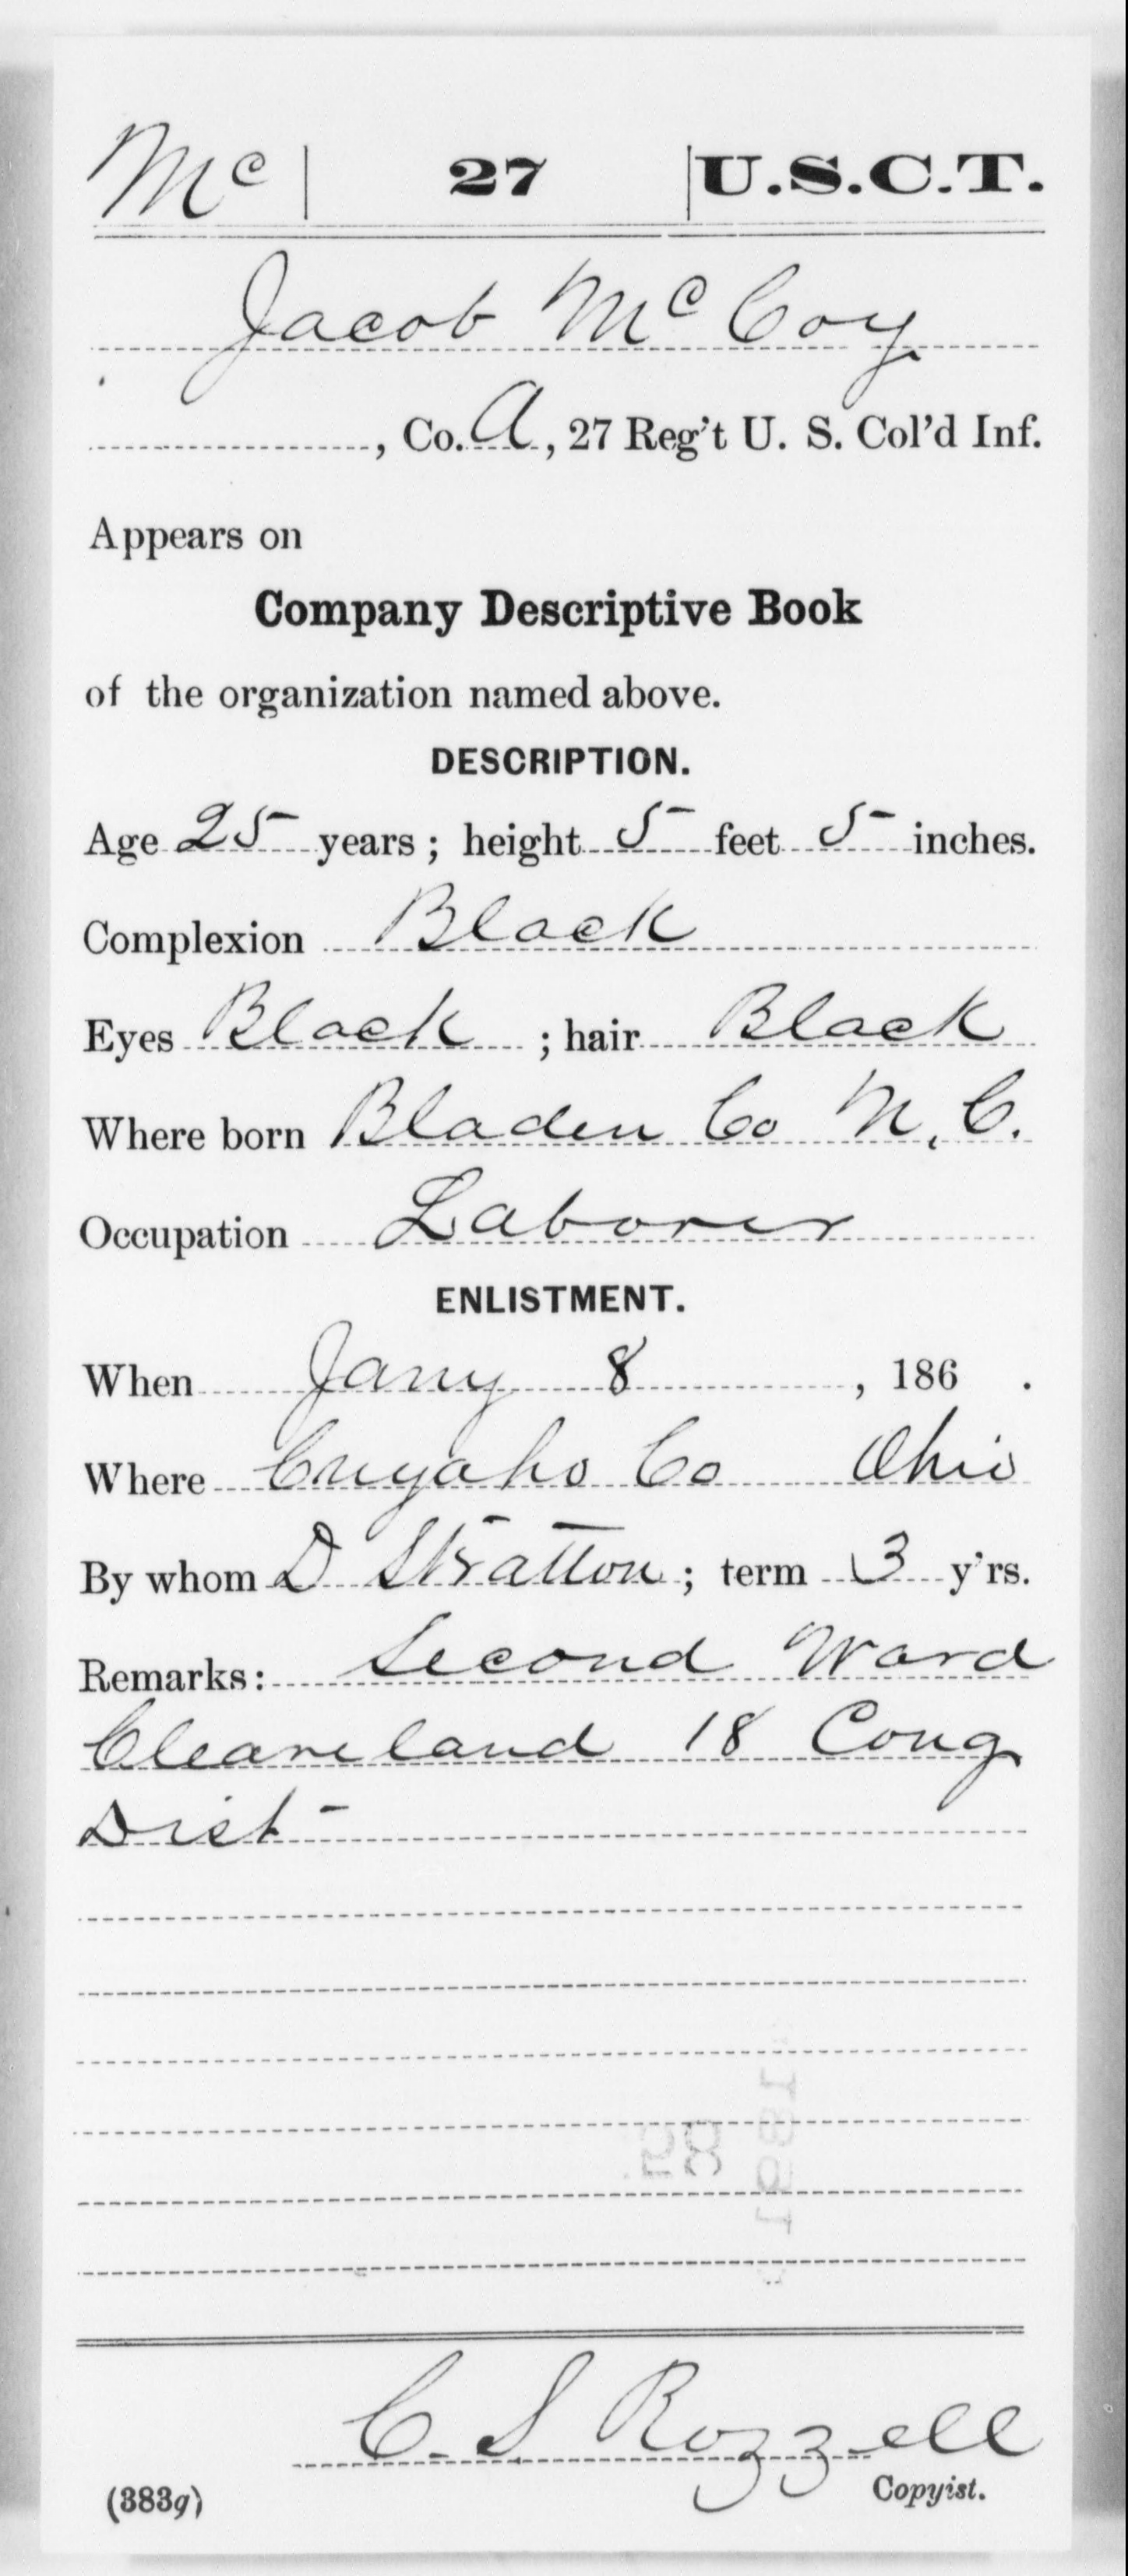 Mc | 27 | U.S.C.T.
Jacob McCoy
, Co. A, 27 Reg't U. S. Col'd Inf.
Appears on
Company Descriptive Book
of the organization named above.
DESCRIPTION.
Age 25 years; height 5 feet 5 inches.
Complexion Black
Eyes Black; hair Black
Where born Bladen Co N.C.
Occupation Laborer
ENLISTMENT.
When Jany 8, 186 .
Where Cuyaho Co Ohio
By whom D Stratton; term 3 y'rs.
Remarks: Second Ward
Cleaveland 18 Cong
Dist-
C. S Rozzell
(383g) Copyist.